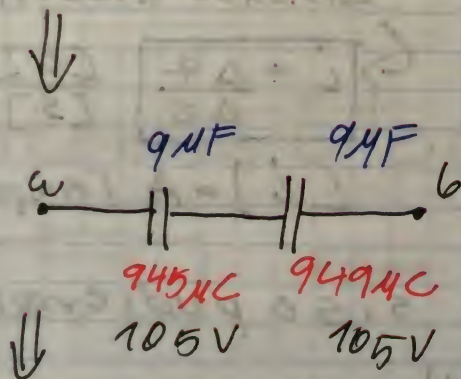 9MF 9MF
a b
945MC 949MC
105V 105V